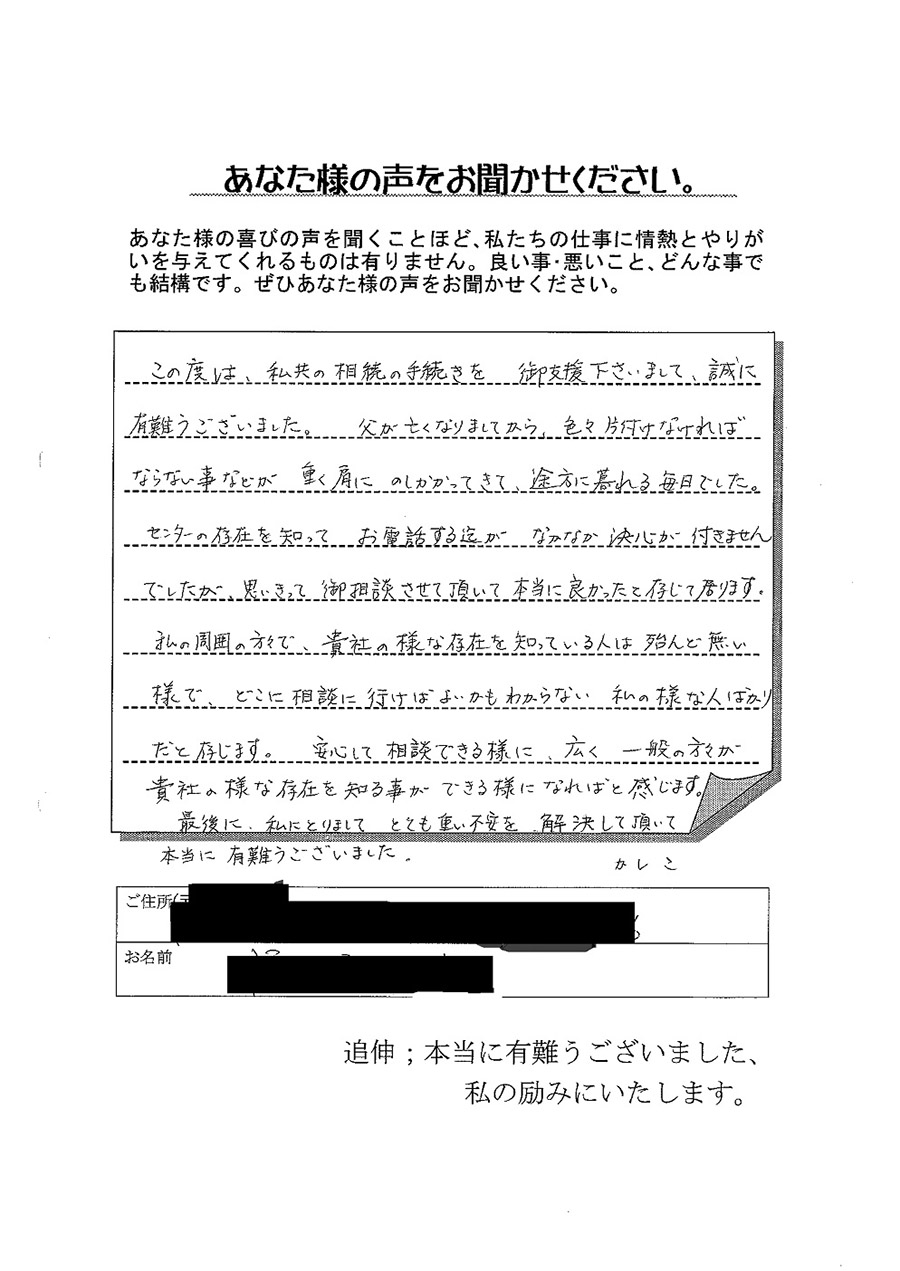 あなた様の声をお聞かせください。
あなた様の喜びの声を聞くことほど、私たちの仕事に情熱とやりが
いを与えてくれるものは有りません。良い事・悪いこと、どんな事で
も結構です。ぜひあなた様の声をお聞かせください。
この度は、私共の相続の手続きを 御支援下さいまして、誠に
有難うございました。 父が亡くなりましてから、色々片付けなければ
ならない事などが 重く肩に のしかかってきて、途方に暮れる毎日でした。
センターの存在を知って お電話する迄が なかなか決心が付きません
でしたが、思いきって御相談させて頂いて本当に良かったと存じて居ります。
私の周囲の方々で、貴社の様な存在を知っている人は殆んど無い
様で、どこに相談に行けばよいかもわからない 私の様な人ばかり
だと存じます。 安心して相談できる様に、広く一般の方々が
貴社の様な存在を知る事ができる様になればと感じます。
最後に、私にとりまして とても重い不安を 解決して頂いて
本当に有難うございました。
かしこ
ご住所(〒
お名前
追伸；本当に有難うございました、
私の励みにいたします。